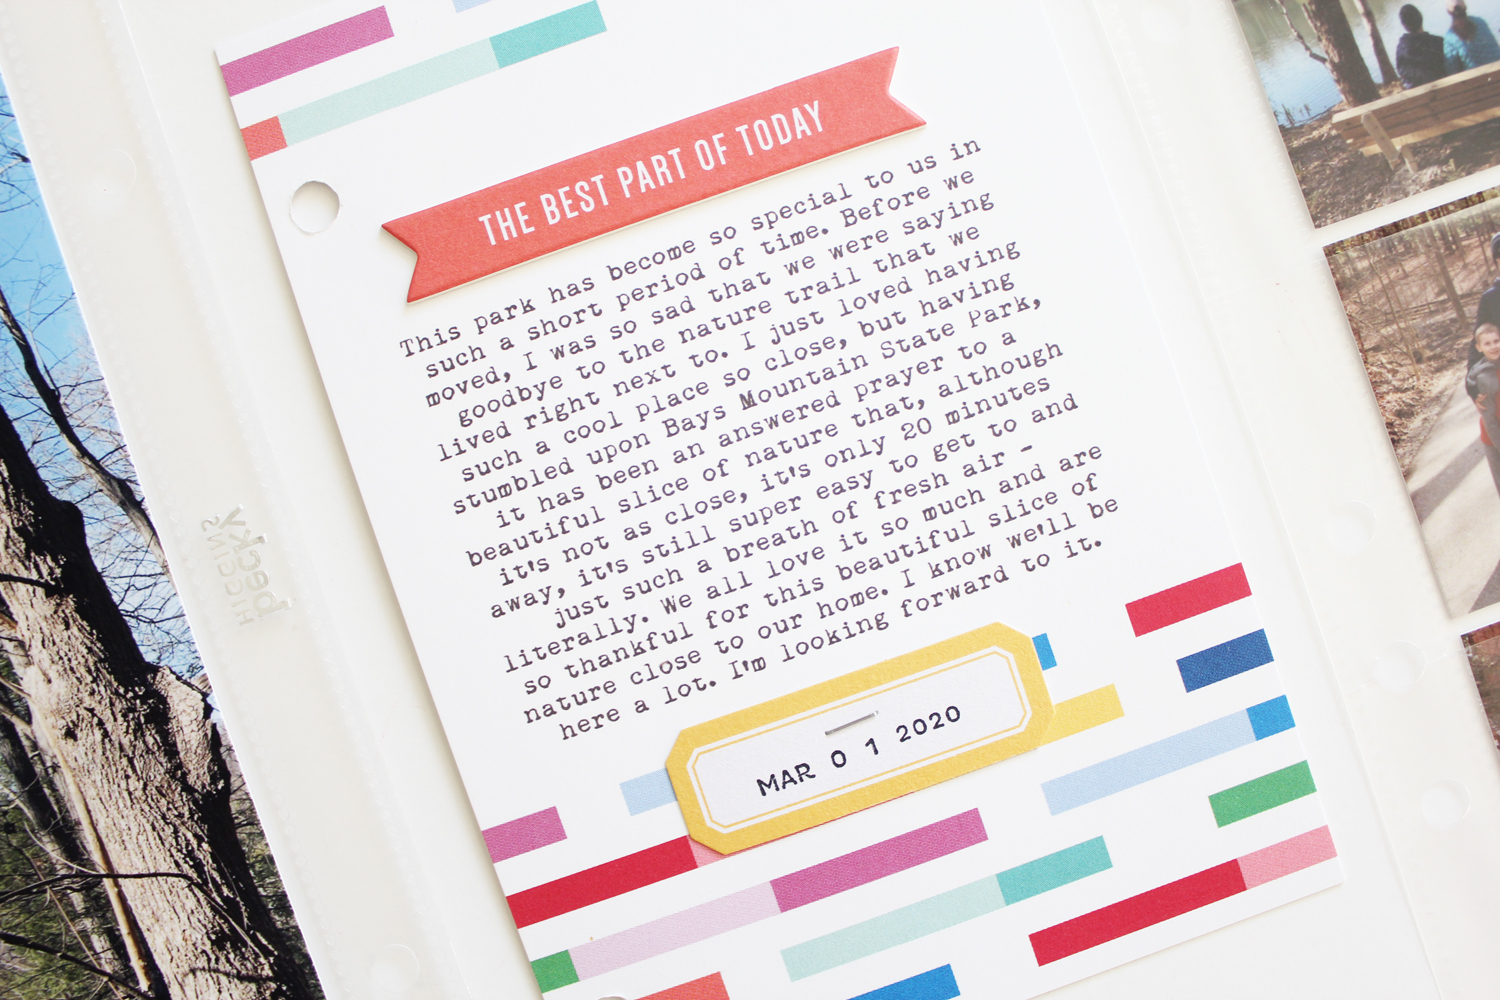 THE BEST PART OF TODAY
This park has become so special to us in
such a short period of time. Before we
moved, I was so sad that we were saying
goodbye to the nature trail that we
lived right next to. I just loved having
such a cool place so close, but having
stumbled upon Bays Mountain State Park,
it has been an answered prayer to a
beautiful slice of nature that, although
it's not as close, it's only 20 minutes
away, it's still super easy to get to and
just such a breath of fresh air -
literally. We all love it so much and are
so thankful for this beautiful slice of
nature close to our home. I know we'll be
here a lot. I'm looking forward to it.
MAR 0 1 2020
becky
HIGGINS